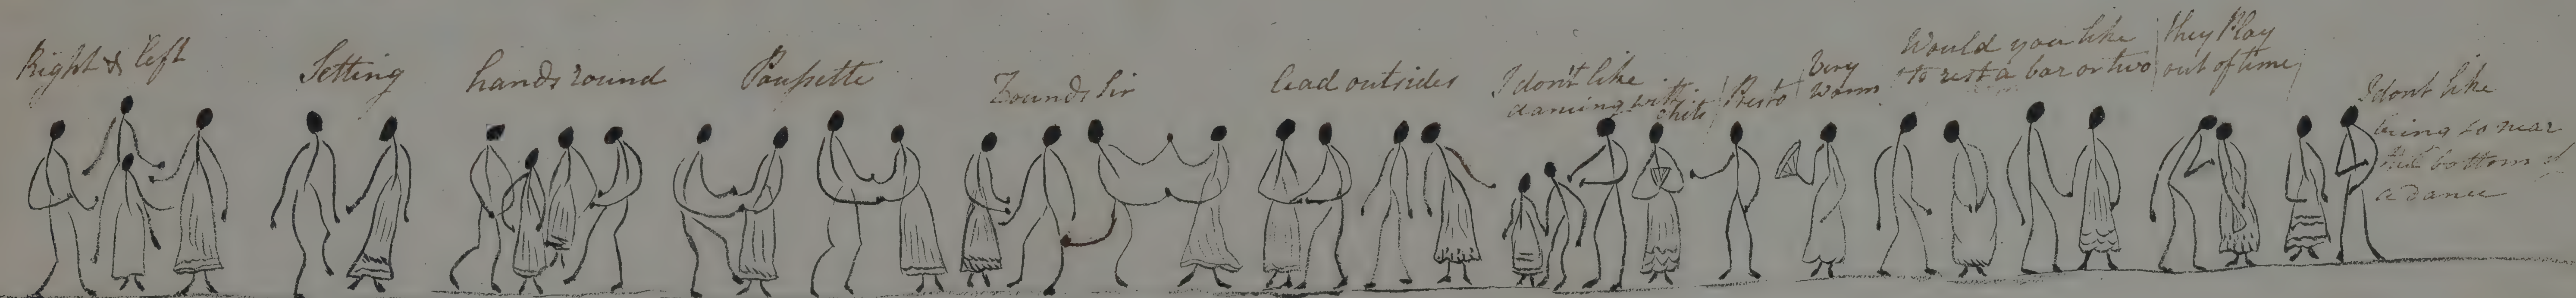 Right & left
Setting
hands round
Poussette
Zounds Sir
lead outsides
I don't like
dancing with
chits
Presto
Very
warm
Would you like
to rest a bar or two
they Play
out of time
I dont like
being so near
the bottom of
a dance